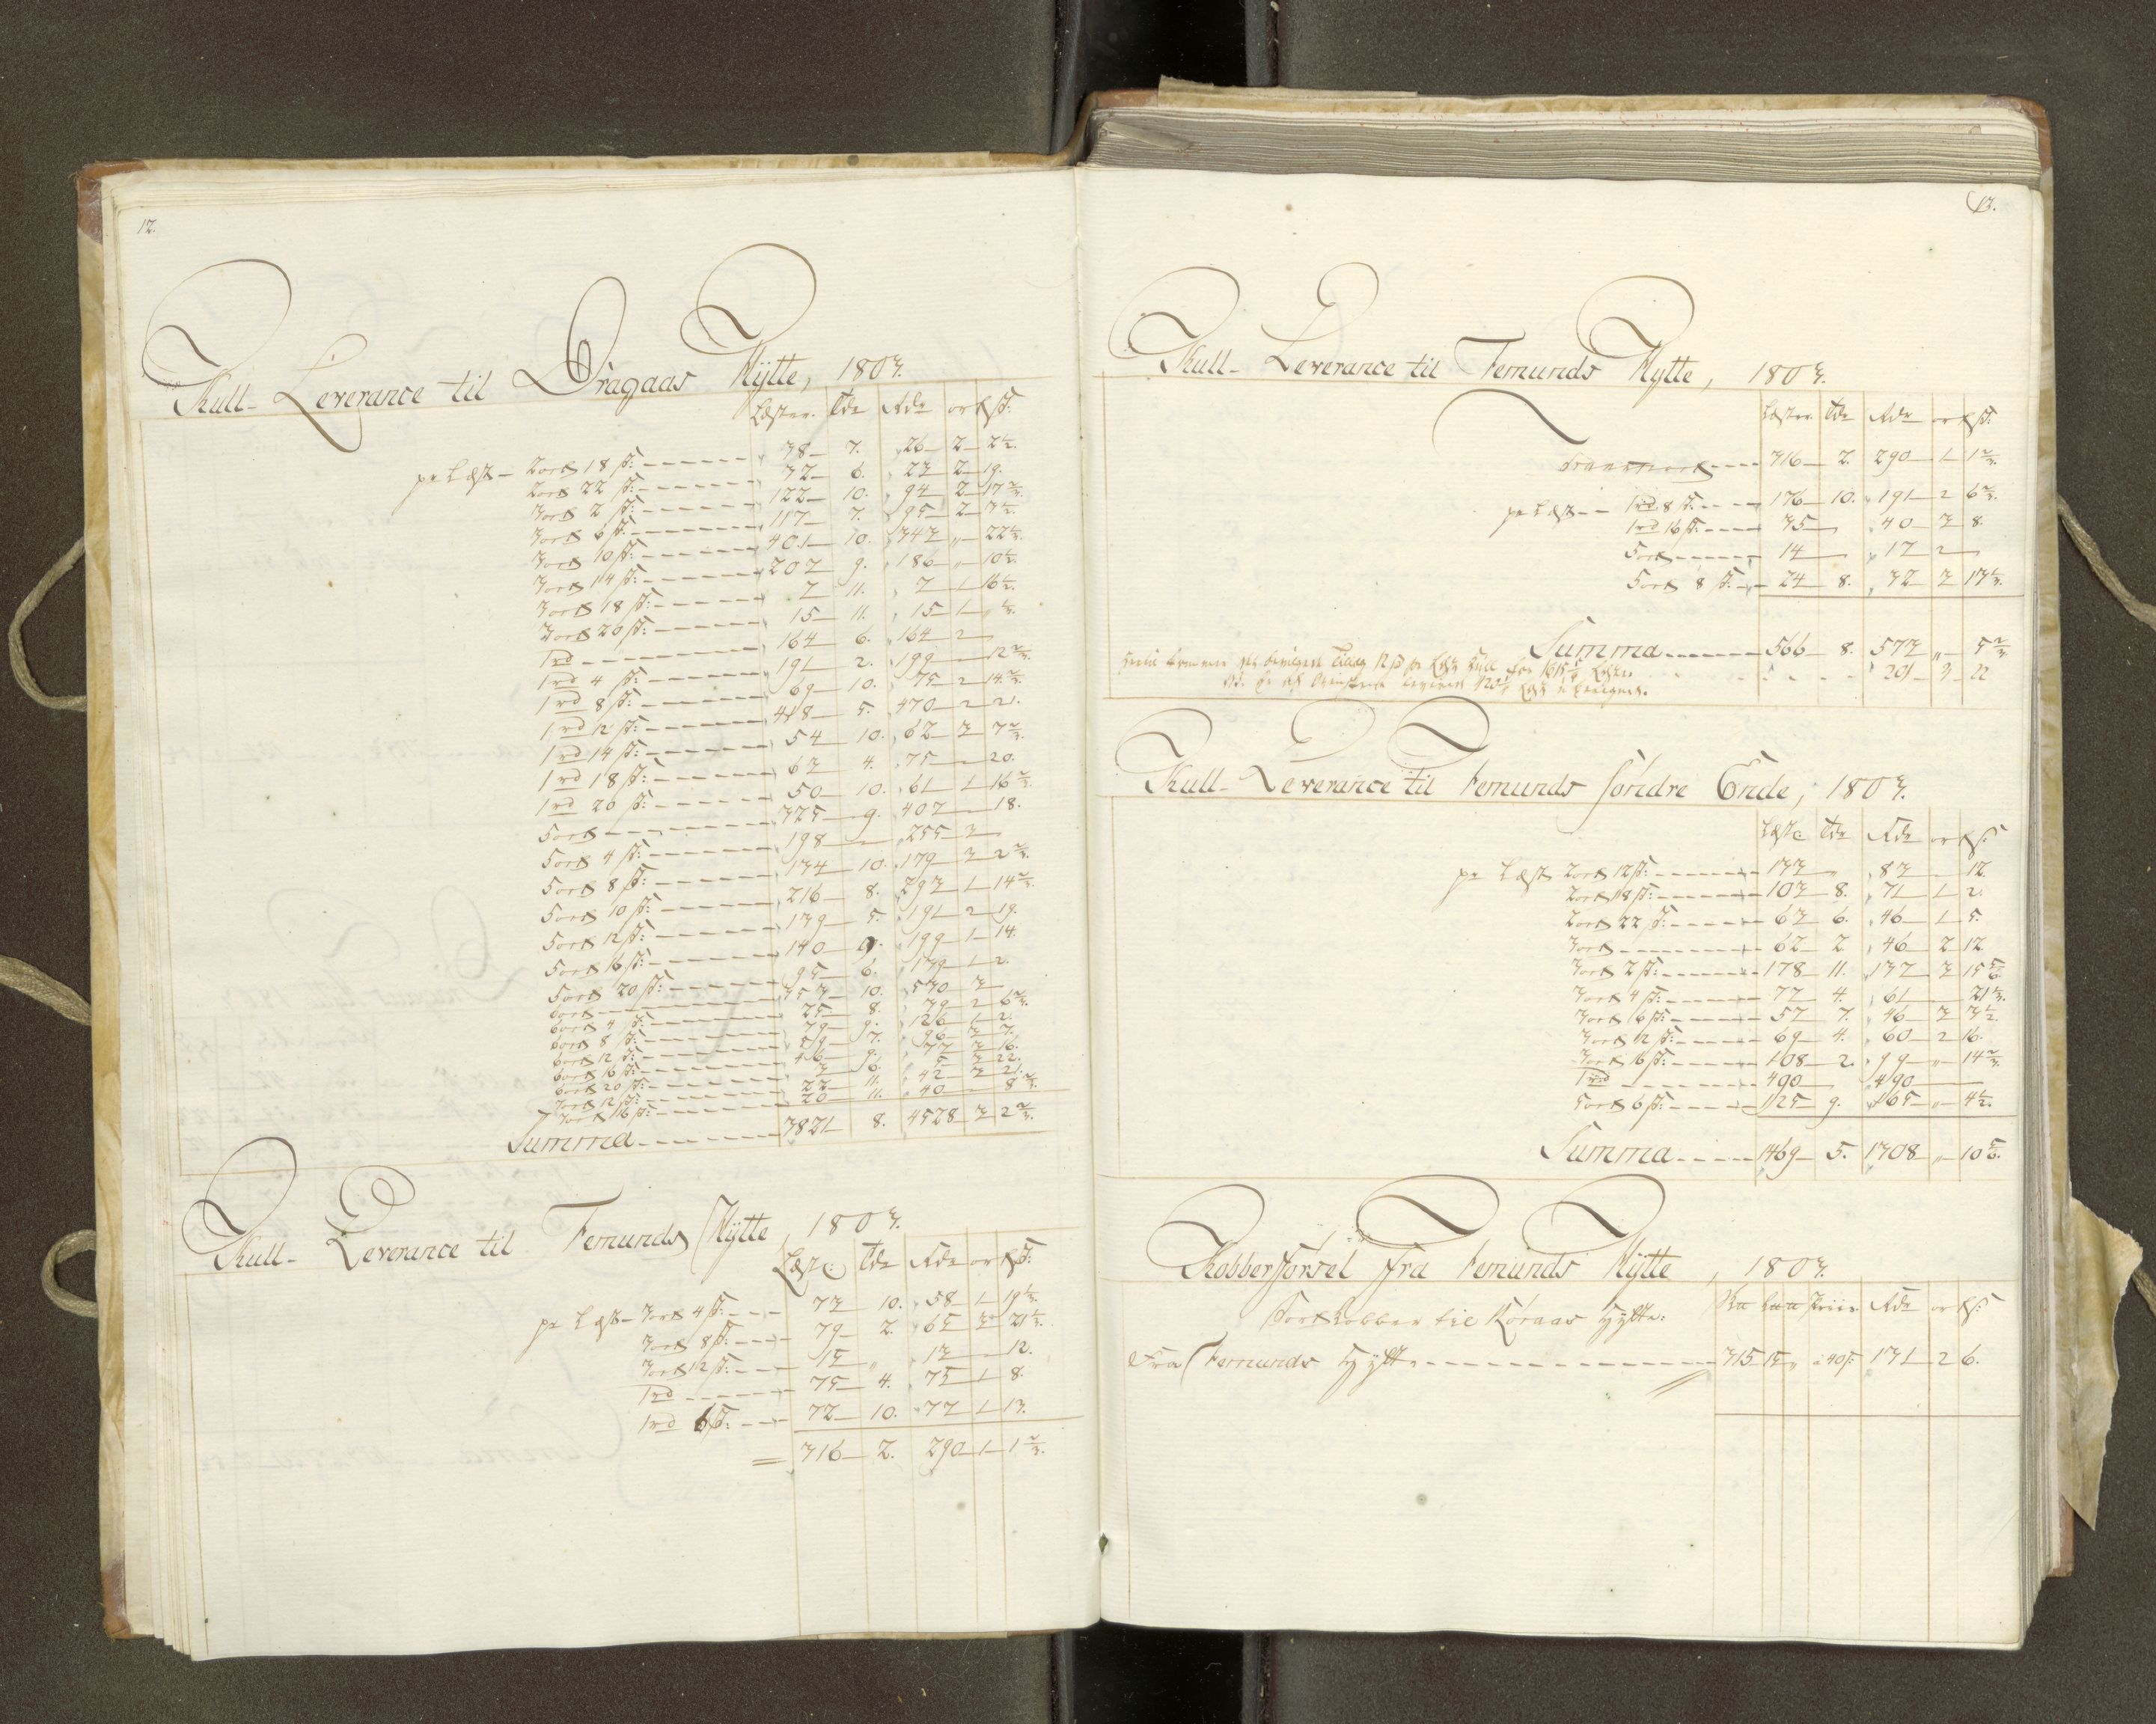 12.
Kull- Leverance til Dragaas Hÿtte, 1803.
Læster. Tdr Rdr ort ß:
pr Læst - 2 ort 18 ß: 38 7. 26 2 2½.
2 ort 22 ß: 32 6. 23 2 19.
3 ort 2 ß: 122 10. 94 2 17⅔.
3 ort 6 ß: 117 7. 95 2 3½.
3 ort 10 ß: 401 10. 343 „ 22⅓.
3 ort 14 ß: 207 9. 186 „ 10½.
3 ort 18 ß: 2 11. 2 1 16½.
3 ort 20 ß: 15 11. 15 1
1 rd 164 6. 164 2
1 rd 4 ß: 191 2. 199 12⅔.
1 rd 8 ß: 69 10. 75 2 14⅔.
1 rd 12 ß: 418 5. 470 2 21.
1 rd 14 ß: 54 10. 62 3 7⅔.
1 rd 18 ß: 63 4. 75 20.
1 rd 20 ß: 50 10. 61 1 16⅔.
5 ort 325 9. 407 18.
5 ort 4 ß: 198 255 3
5 ort 8 ß: 134 10. 179 3 2⅔.
5 ort 10 ß: 216 8. 293 1 14⅔.
5 ort 12 ß: 139 5. 191 2 19.
5 ort 16 ß: 140 9. 199 1 14.
5 ort 20 ß: 95 6. 139 1 2.
6 ort 353 10. 530 3
6 ort 4 ß: 25 8. 39 2 6⅔.
6 ort 8 ß: 79 9. 126 1 2.
6 ort 12 ß: 59 7. 96 3 7.
6 ort 16 ß: 46 9. 77 3 16.
6 ort 20 ß: 3 6. 5 3 22.
7 ort 12 ß: 22 11. 42 3 21.
7 ort 16 ß: 20 11. 40 8⅔.
Summa 3821 8. 4528 3 2⅔.
Kull- Leverance til Femunds Hÿtte, 1803.
Læster Tdr Rdr ort ß:
pr Læst - 3 ort 4 ß: 73 10. 58 1 19⅓.
3 ort 8 ß: 79 2. 65 3 21⅓.
3 ort 12 ß: 15 „ 13 12.
1 rd 75 4. 75 1 8.
1 rd 6 ß: 72 10. 77 1 13.
316 2. 290 1 1⅔.
12.
Kull- Leverance til Femunds Hytte, 1803.
Læster Tdr Rdr ort ß:
Transport 316 2. 290 1 1⅔.
pr Læst - 1 rd 8 ß: 176 10. 191 2 6⅔.
1 rd 16 ß: 35 40 3 8.
5 ort 14 17 2
5 ort 8 ß: 24 8. 32 3 13⅓.
Summa 566 8. 573 „ 5⅔.
201 3 22
Kull- Leverance til Femunds søndre Ende, 1803.
Læste Tdr Rdr ort ß:
pr Læst 2 ort 12 ß: 133 83 12.
2 ort 18 ß: 103 8. 71 1 2.
2 ort 22 ß: 63 6. 46 1 5.
3 ort 62 2 46 2 12.
3 ort 2 ß: 178 11. 137 3 15⅚.
3 ort 4 ß: 77 4. 61 21⅓.
3 ort 6 ß: 57 7. 46 3 3½.
3 ort 12 ß: 69 4. 60 2 16.
3 ort 16 ß: 108 2. 99 „ 14⅔.
1 rd 490 490
5 ort 6 ß: 125 9. 165 „ 4½.
Summa 1469 5. 1308 „ 10⅚.
Kobberførsel fra Femunds Hÿtte, 1803.
Priis Rdr ort ß:
Sort Kobber til Røraas Hytte:
Fra Femunds Hÿtte 315 15 „ a 40 ß: 131 2 6.